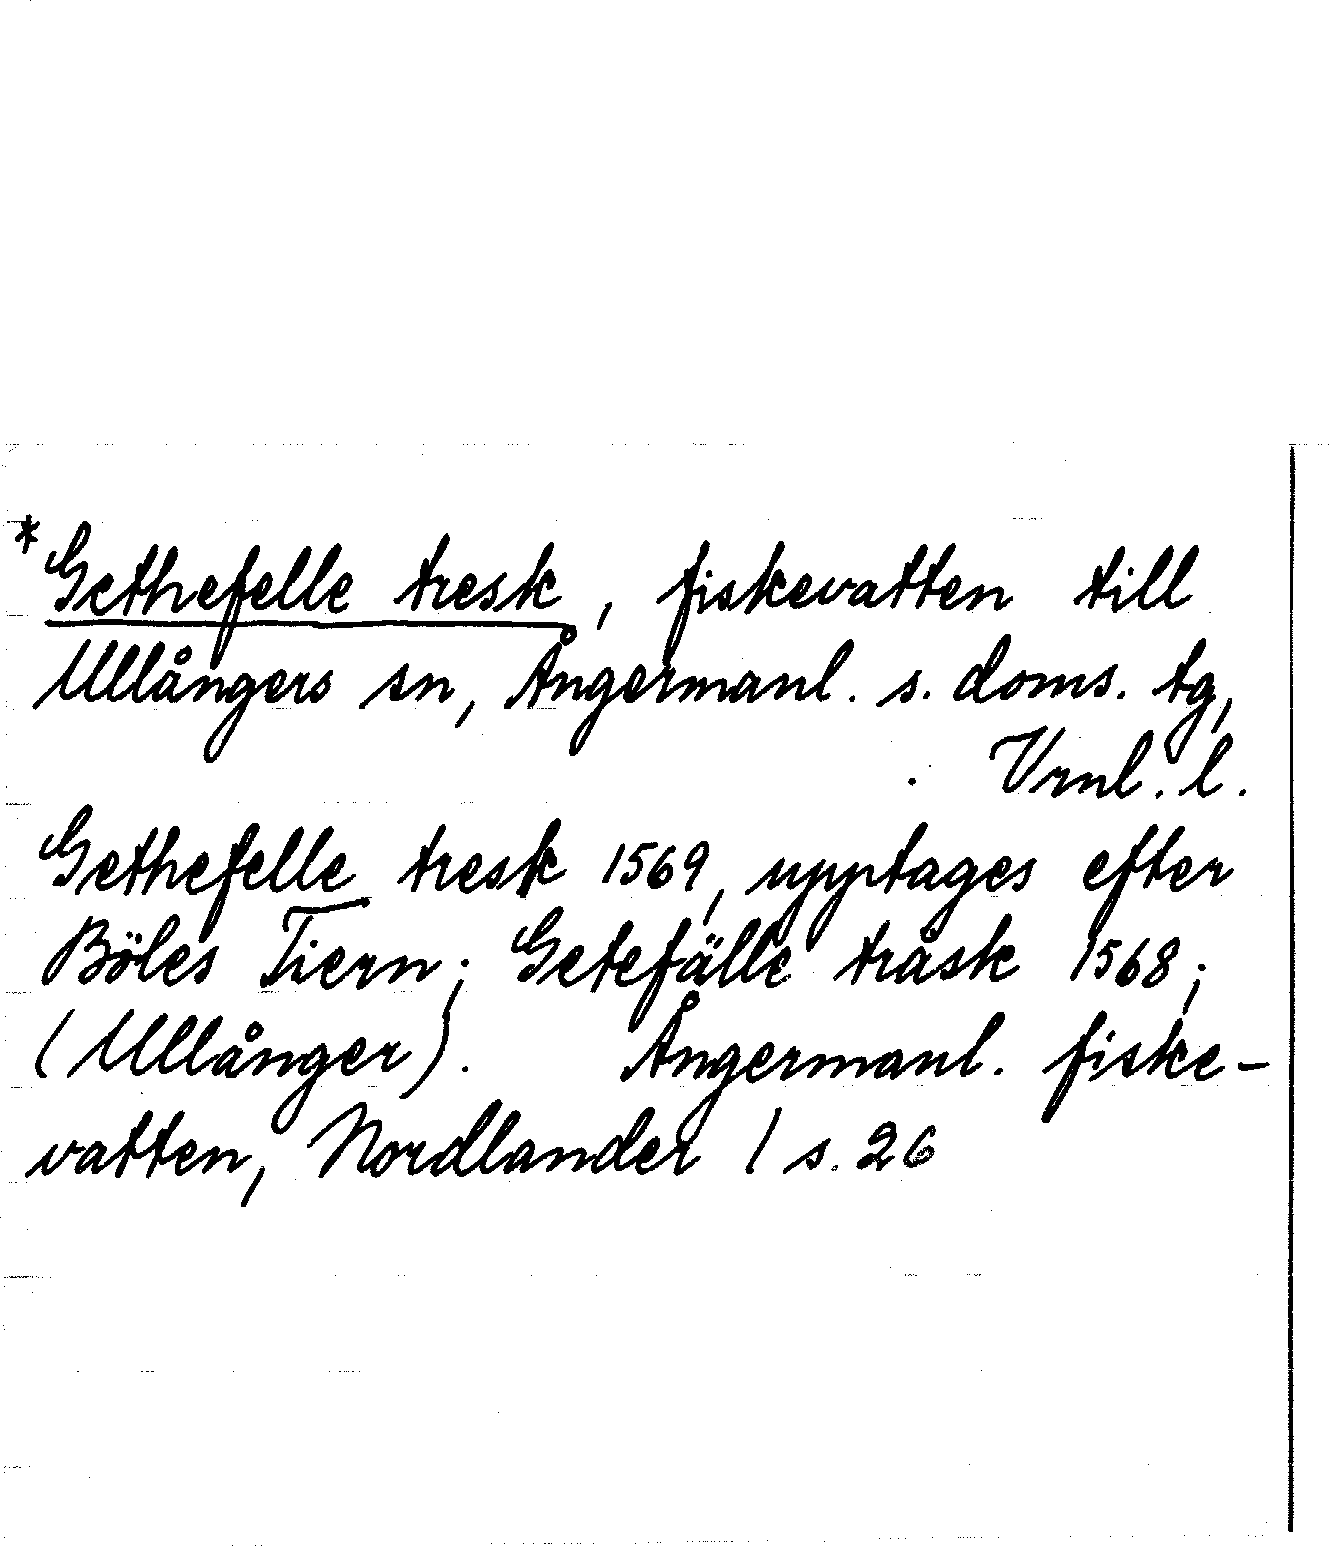 *Gethefelle tresk, fiskevatten till
Ullångers sn, Ångermanl. s. doms. tg,
Vrnl. l.
Gethefelle tresk 1569, upptages efter
Böles Tiern; Getefälle träsk 1568;
(Ullånger). Ångermanl. fiske-
vatten, Nordlander 1 s. 26